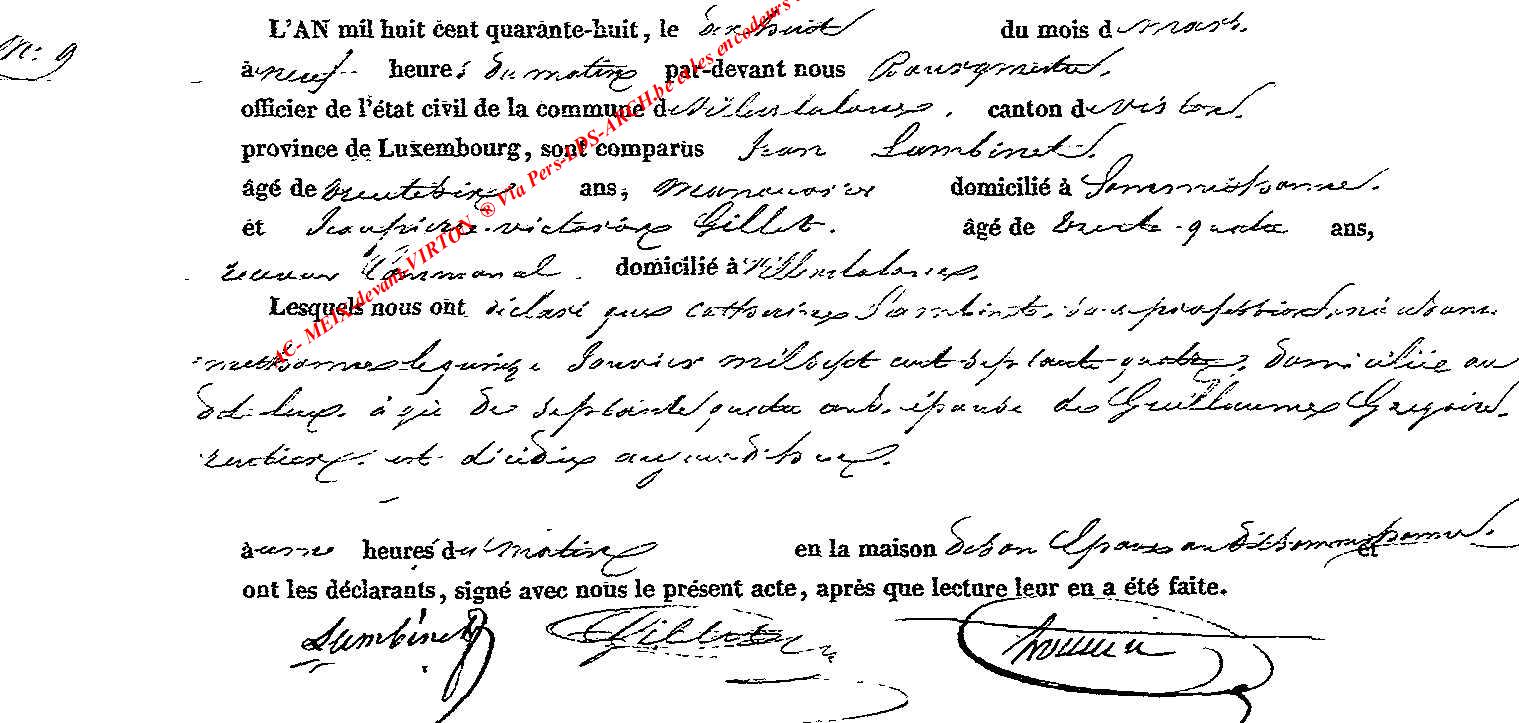 N: 9
L'AN mil huit cent quarante-huit, le dix huit du mois de mars.
à neuf heures du matin par-devant nous Bourgmestre.
officier de l'état civil de la commune de Villers laloue, canton de virton.
province de Luxembourg, sont comparus Jean Lambinet.
âgé de ans, Manouvrier domicilié à Sommethonne.
et Jean pierre victorin Gillet. âgé de trente-quatre ans,
receveur Communal. domicilié à Villers laloue.
Lesquels nous ont déclaré que Catherine Lambinet, sans profession, née à Somme
methonne le quinze Janvier mil sept cent septante quatre, domiciliée au
dit lieu. âgée de septante quatre ans. épouse de Guillaume Gregoire.
rentier. est décédée aujourd'hui.
à une heures du matin en la maison de son Epoux au dit Sommethonne. et
ont les déclarants, signé avec nous le présent acte, après que lecture leur en a été faite.
Lambinet Gillet
AC- MEIX-devant-VIRTON ® Via Pers-EPS-ARCH.be et les encodeurs